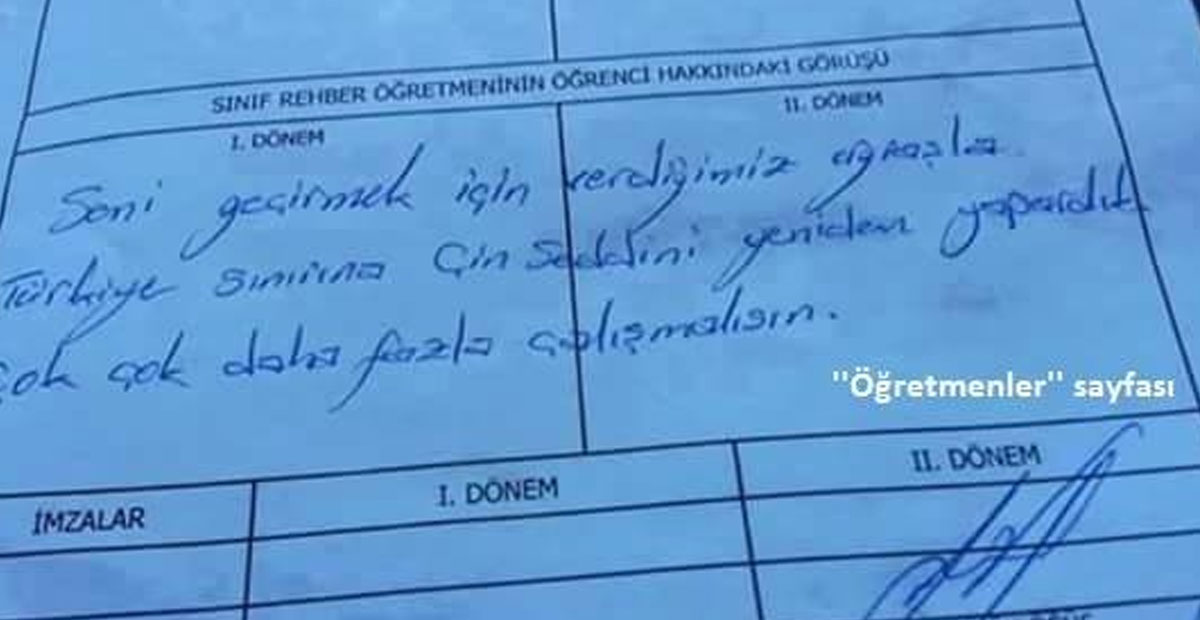 SINIF REHBER ÖĞRETMENİNİN ÖĞRENCİ HAKKINDAKİ GÖRÜŞÜ
I. DÖNEM
II. DÖNEM
Seni geçirmek için verdiğimiz uğraşla
Türkiye sınırına Çin Seddini yeniden yapardık
çok çok daha fazla çalışmalısın.
"Öğretmenler" sayfası
İMZALAR
I. DÖNEM
II. DÖNEM